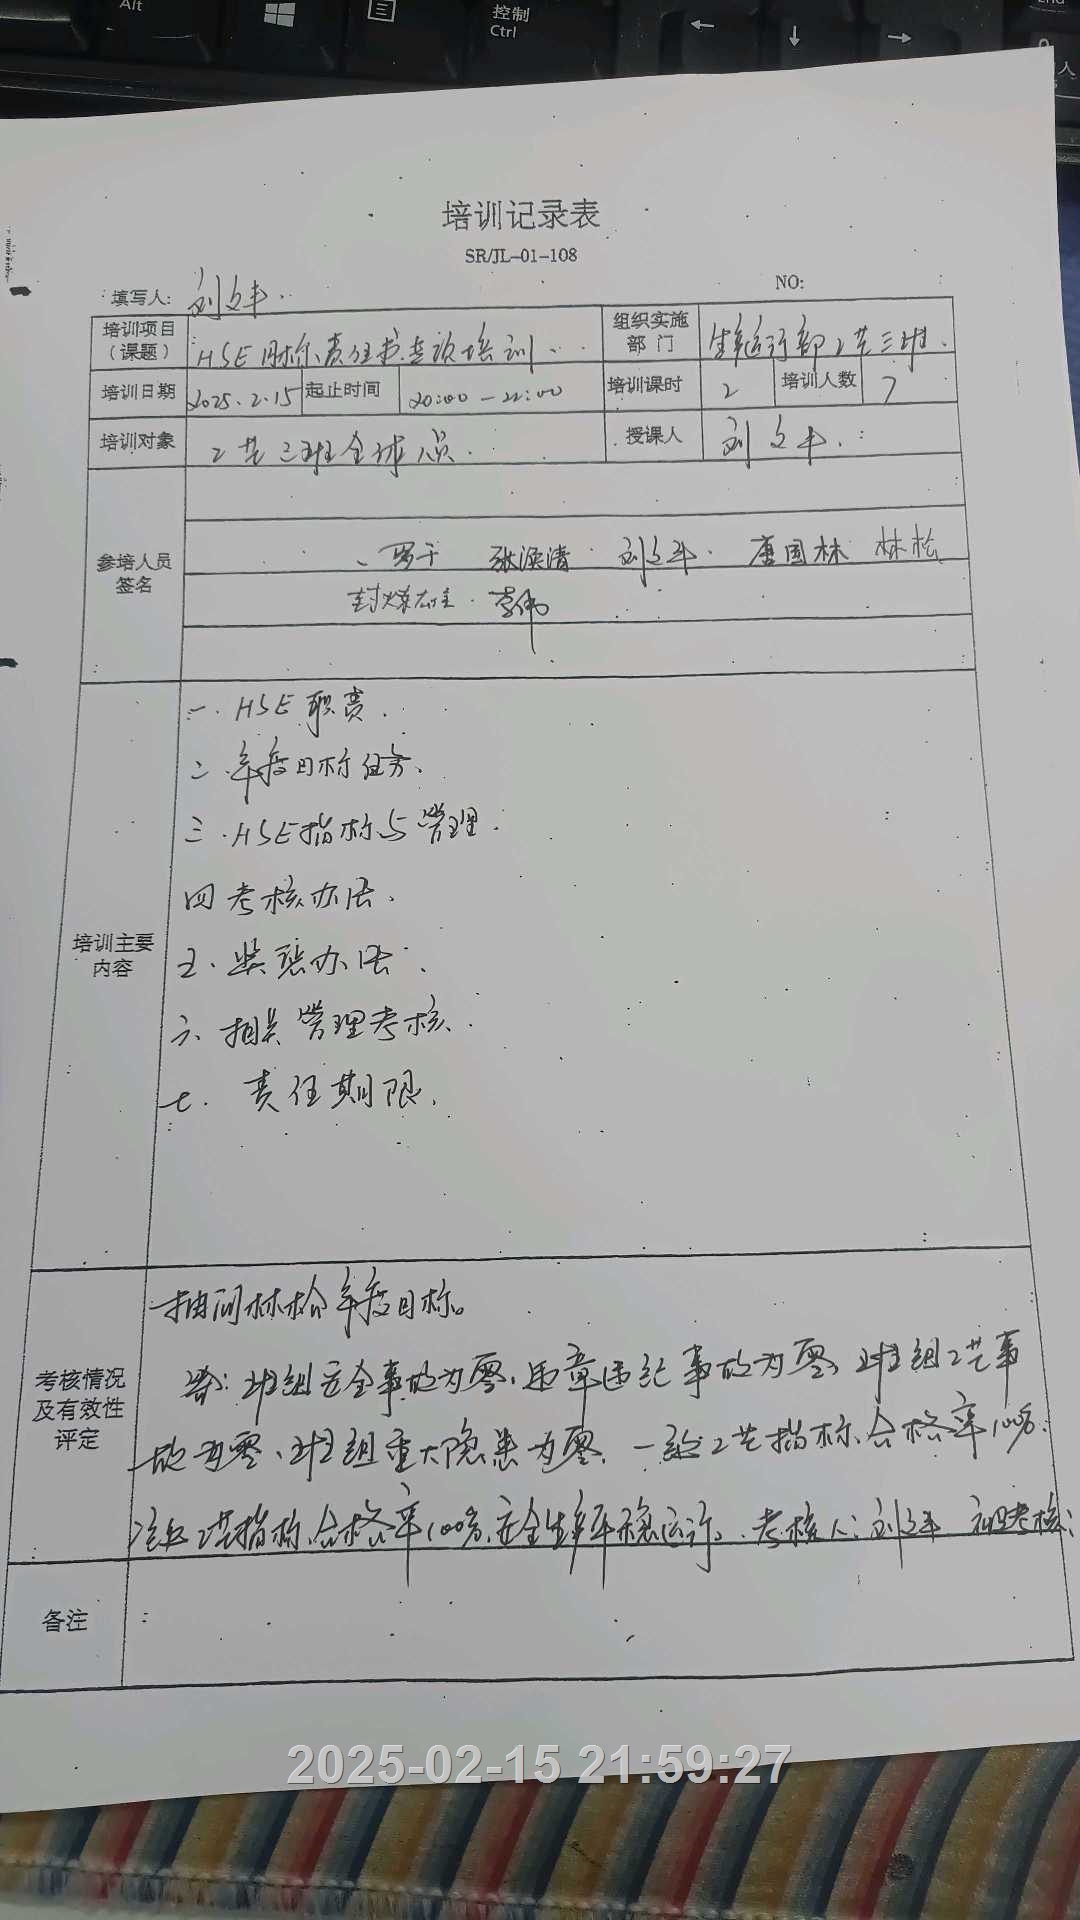 Alt
控制
Ctrl
培训记录表
SR/JL-01-108
填写人: 刘文丰.
NO:
培训项目（课题） HSE目标责任书专项培训. 组织实施部门 生产运行部工艺三班.
培训日期 2025.2.15 起止时间 20:00—22:00 培训课时 2 培训人数 7
培训对象 工艺三班全体人员. 授课人 刘文丰.
参培人员签名
罗干 张洪清 刘文丰. 唐国林 林松
李伟
培训主要内容
一. HSE职责.
二. 年度目标任务.
三. HSE指标与管理.
四 考核办法.
五. 奖惩办法.
六. 相关管理考核.
七. 责任期限.
考核情况及有效性评定
抽问林松年度目标。
答: 班组安全事故为零、违章违纪事故为零、班组工艺事
故为零、班组重大隐患为零、一级工艺指标合格率100%.
工艺指标合格率100%、安全生产平稳运行。考核人: 刘文丰
备注
2025-02-15 21:59:27